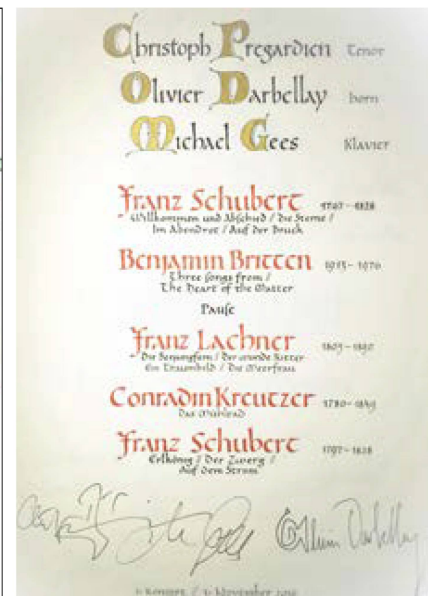 Christoph Pregardien Tenor
Olivier Darbellay horn
Michael Gees Klavier
Franz Schubert 1797–1828
Willkommen und Abschied / die Sterne /
Im Abendrot / Auf der Bruck
Benjamin Britten 1913–1976
Three Songs from /
The Heart of the Matter
Pause
Franz Lachner 1803–1890
Die Seejungfern / Der wunde Ritter
Ein Traumbild / Die Meerfrau
Conradin Kreutzer 1780–1849
Das Mühlrad
Franz Schubert 1797–1828
Erlkönig / Der Zwerg /
Auf dem Strom
Olivier Darbellay
Konzert / November